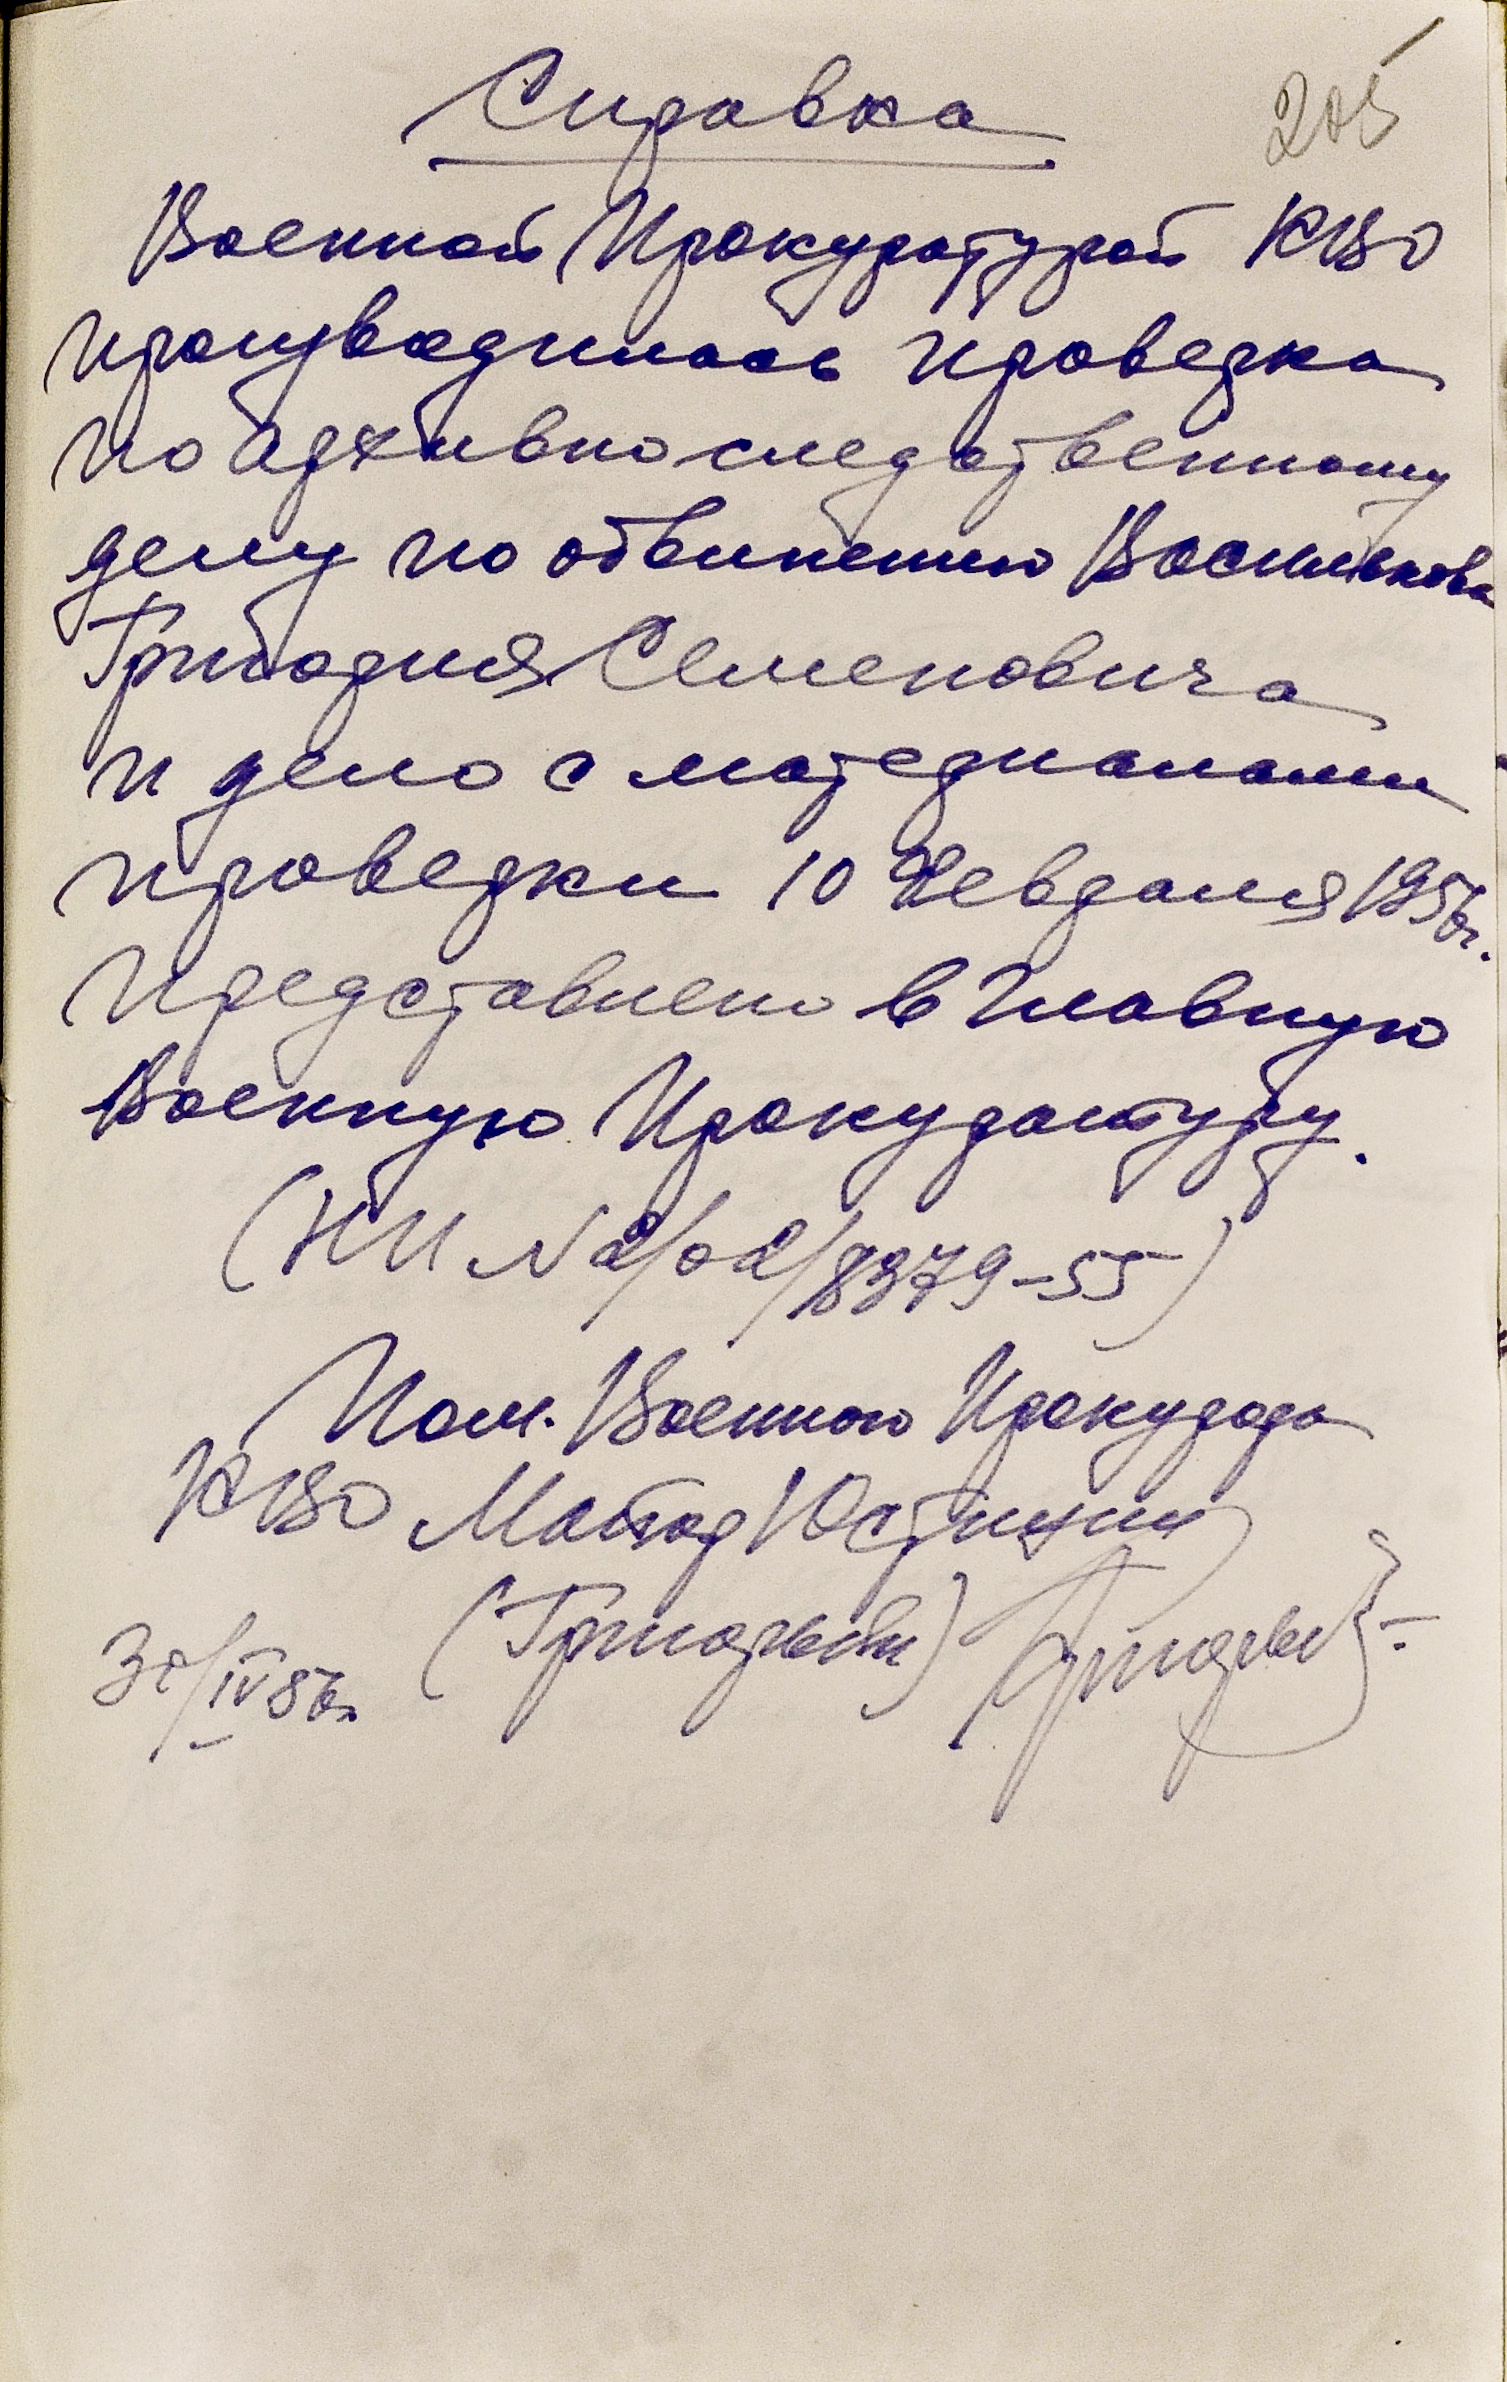 205
Справка
Военной Прокуратурой КВО
производилась проверка
по архивно следственному
делу по обвинению Василькова
Григория Семеновича
и дело с материалами
проверки 10 февраля 1956г.
представлено в Главную
Военную Прокуратуру.
(НП № 2/02/8379-55)
Пом. Военного Прокурора
КВО Майор Юстиции
(Григорьев)
30/IV 56г.